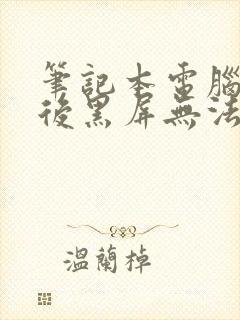 筆記本電腦
後黑屏無法
溫蘭掉